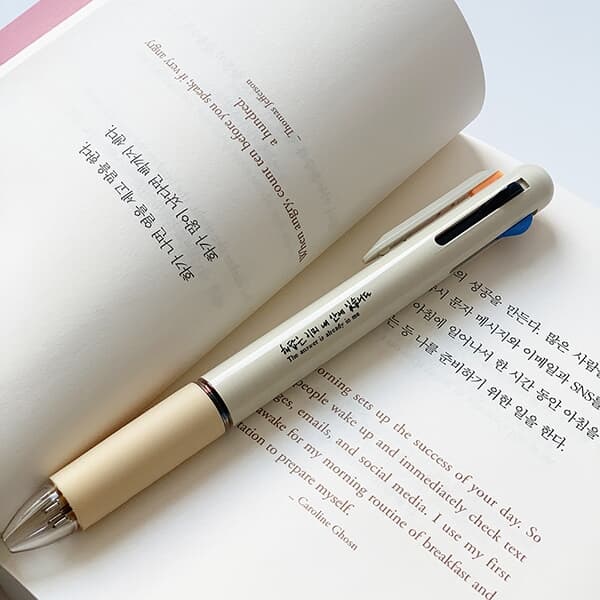 When angry, count ten before you speak; if very angry
a hundred.
_ Thomas Jefferson
화가 나면 열을 세고 말을 한다.
화가 많이 났다면 백까지 센다.
해답은 이미 내 안에 있습니다
The answer is already in me
의 성공을 만든다. 많은 사람
시 문자 메시지와 이메일과 SNS를
아침에 일어나서 한 시간 동안 아침을
는 등 나를 준비하기 위한 일을 한다.
morning sets up the success of your day. So
people wake up and immediately check text
ages, emails, and social media. I use my first
awake for my morning routine of breakfast and
tation to prepare myself.
_ Caroline Ghosn